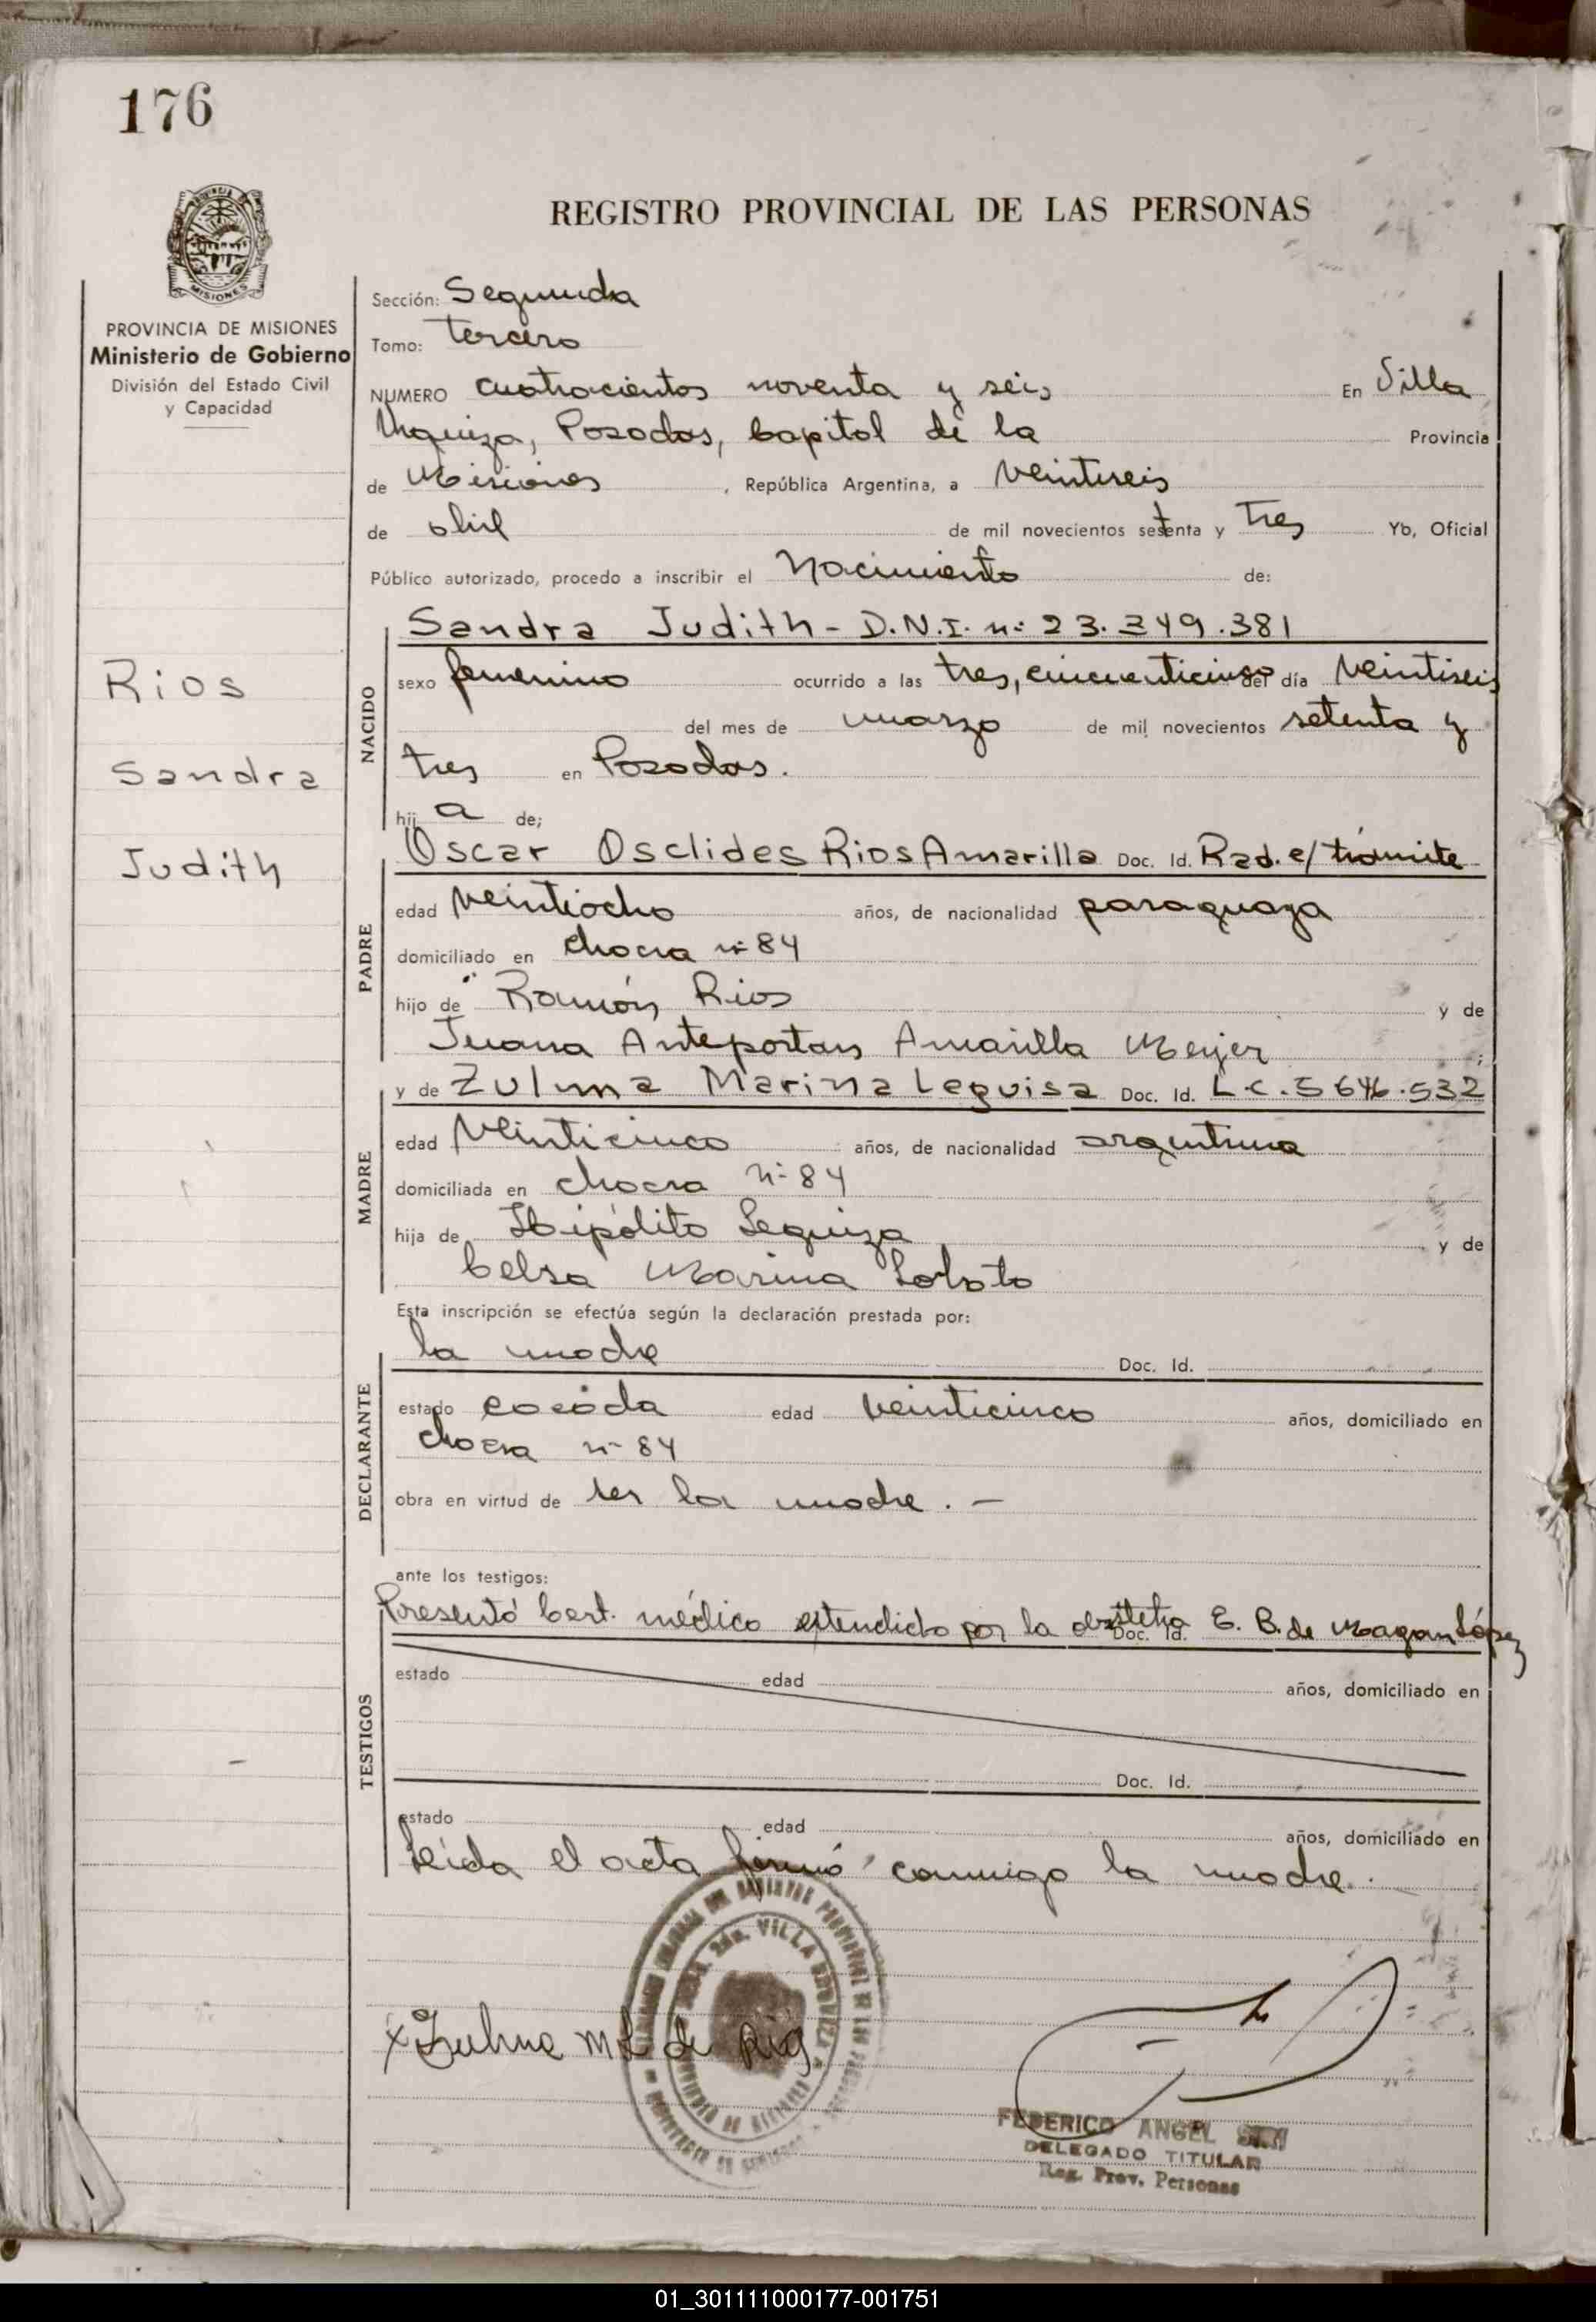 176
REGISTRO PROVINCIAL DE LAS PERSONAS
MISIONES
PROVINCIA DE MISIONES
Ministerio de Gobierno
División del Estado Civil
y Capacidad
Rios
Sandra
Judith
Sección: Segunda
Tomo: tercero
NUMERO cuatrocientos noventa y seis En Villa
Urquiza, Posadas, Capital de la Provincia
de Misiones , República Argentina, a veintiseis
de abril de mil novecientos setenta y tres Yo, Oficial
Público autorizado, procedo a inscribir el Nacimiento de:
NACIDO
Sandra Judith - D.N.I. nº 23.249.381
sexo femenino ocurrido a las tres, cincuenticinco del día veintiseis
del mes de marzo de mil novecientos setenta y
tres en Posadas.
hij a de;
PADRE
Oscar Osclides Rios Amarilla Doc. Id. Rad. e/ trámite
edad veintiocho años, de nacionalidad paraguaya
domiciliado en chacra nº 84
hijo de Ramón Rios y de
Juana Anteportan Amarilla Meyer ;
MADRE
y de Zulma Marina Leguisa Doc. Id. L.C. 5646.532
edad veinticinco años, de nacionalidad argentina
domiciliada en chacra nº 84
hija de Hipólito Leguiza y de
Celsa Marina Loboto
Esta inscripción se efectúa según la declaración prestada por:
DECLARANTE
la madre Doc. Id.
estado casada edad veinticinco años, domiciliado en
chacra nº 84
obra en virtud de ser la madre. —
ante los testigos:
TESTIGOS
Presentó Cert. médico extendido por la obstetra Doc. Id. E. B. de Magan López
estado edad años, domiciliado en
Doc. Id.
estado edad años, domiciliado en
Leída el acta firmó conmigo la madre.
VILLA URQUIZA
x Zulma M L de Rios
FEDERICO ANGEL
DELEGADO TITULAR
Reg. Prov. Personas
01_301111000177-001751